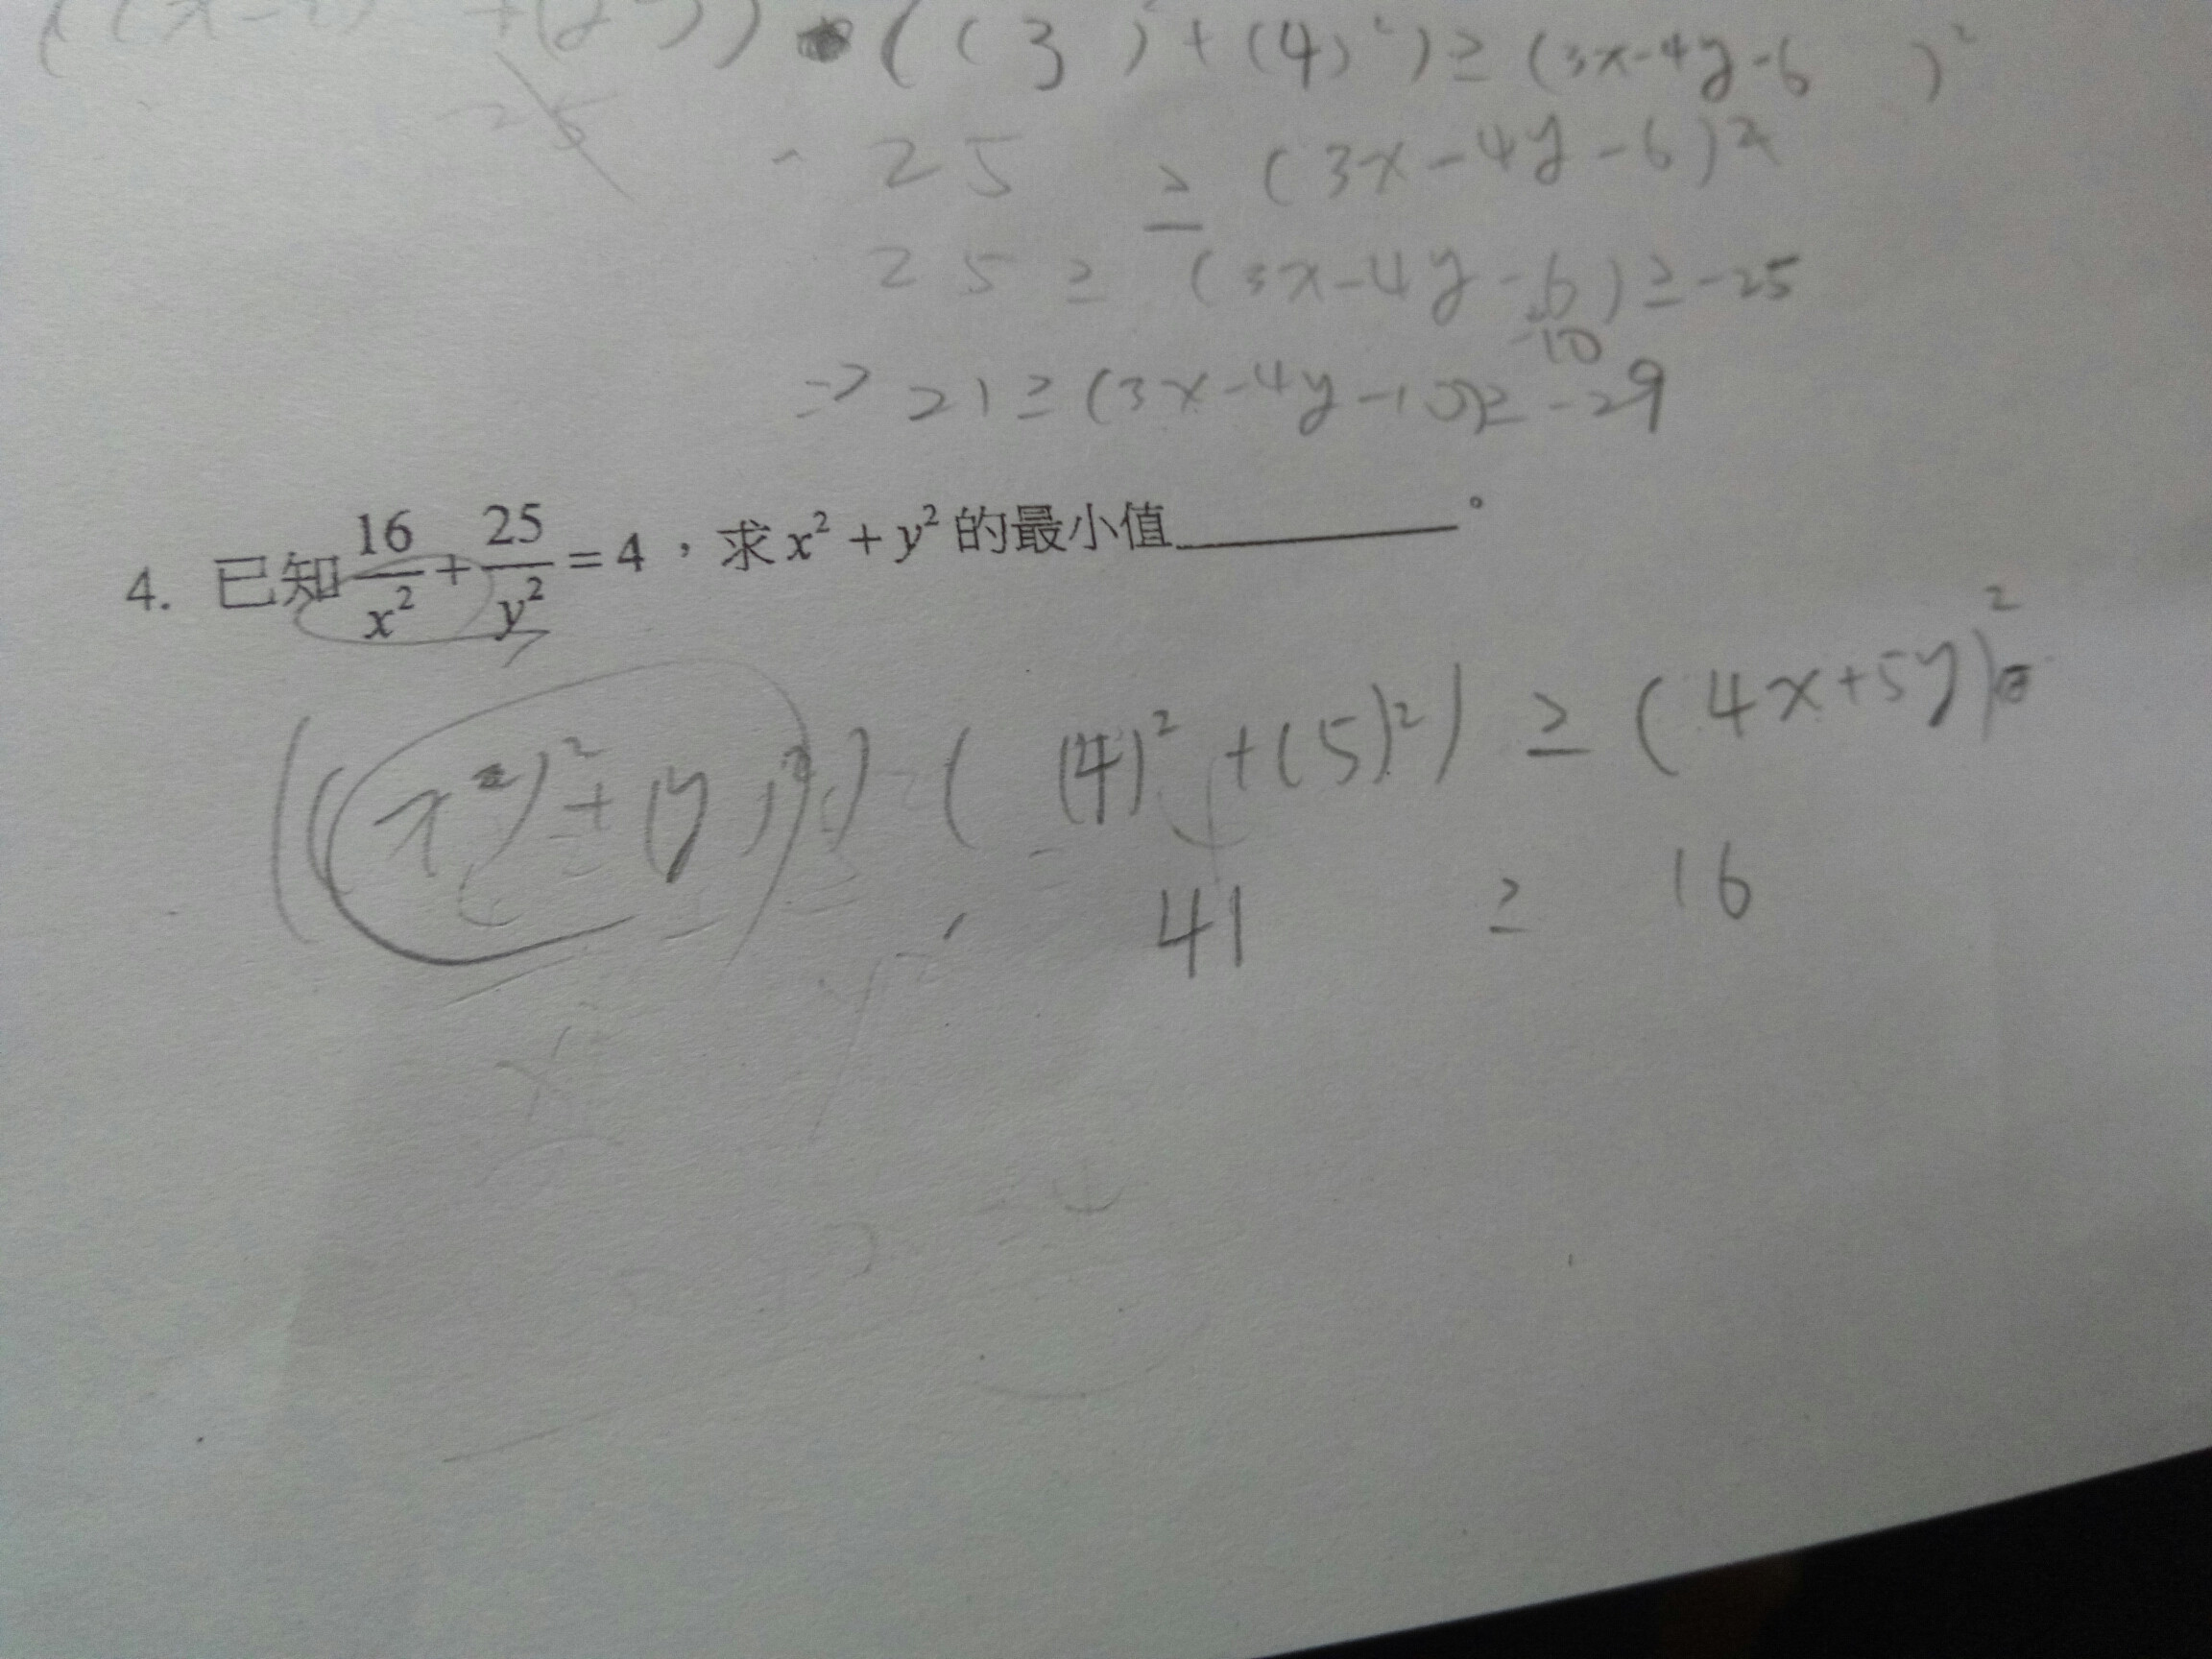 ((3)²+(4)²)≥(3x-4y-6)²
25 ≥ (3x-4y-6)²
25 ≥ (3x-4y-6)≥-25
-10
⇒ 21≥(3x-4y-10)≥-29
4. 已知 16/x² + 25/y² = 4，求 x² + y² 的最小值________。
((x)²+(y)²)((4)²+(5)²) ≥ (4x+5y)²
41 ≥ 16